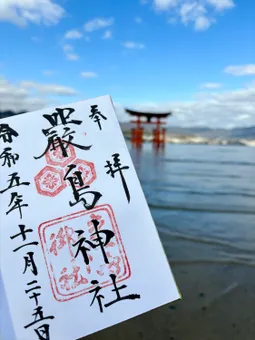 奉拝
嚴島神社
令和五年十一月二十五日